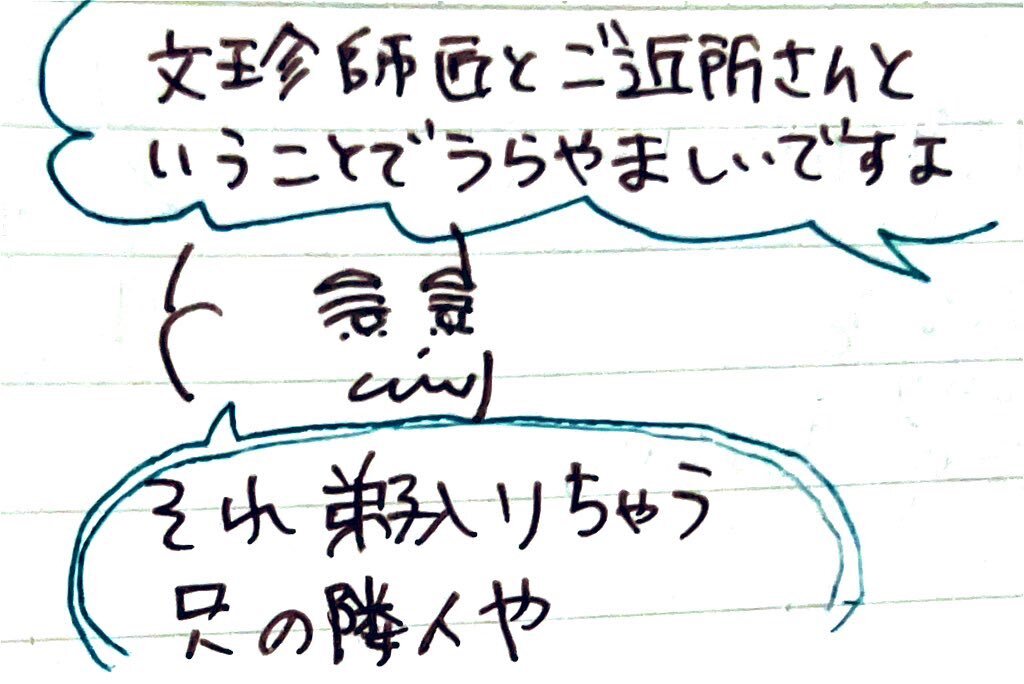 文珍師匠とご近所さんと
いうことでうらやましいですよ
それ弟子入りちゃう
只の隣人や